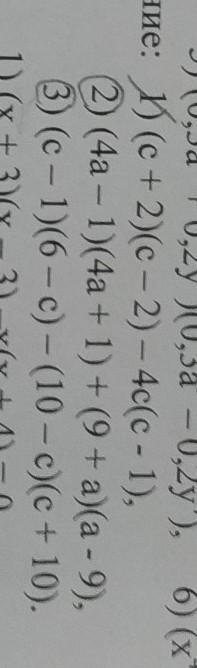 0,2y )(0,3a – 0,2y ), 6) (x
ние: 1) (c + 2)(c – 2) – 4c(c - 1),
2) (4a – 1)(4a + 1) + (9 + a)(a - 9),
3) (c – 1)(6 – c) – (10 – c)(c + 10).
1) (x + 3)(x – 3) – x(x + 4) = 0